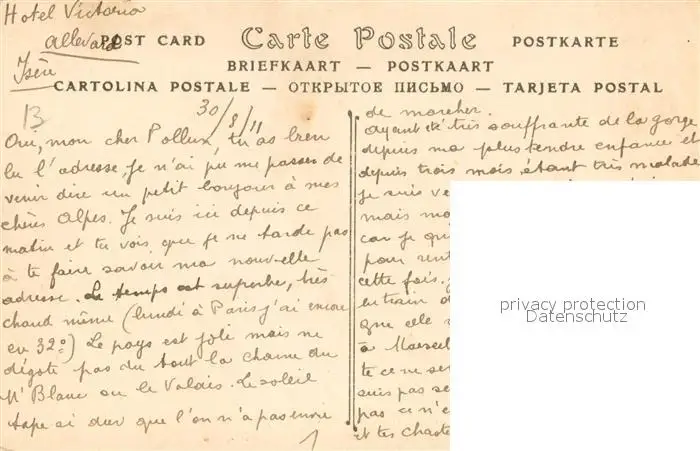 Hotel Victoria
Allevard
Isère
POST CARD Carte Postale POSTKARTE
BRIEFKAART — POSTKAART
CARTOLINA POSTALE — ОТКРЫТОЕ ПИСЬМО — TARJETA POSTAL
13
30/8/11
Oui, mon cher Pollux, tu as bien
lu l'adresse, je n'ai pu me passer de
venir dire un petit bonjour à mes
chères Alpes. Je suis ici depuis ce
matin et tu vois que je ne tarde pas
à te faire savoir ma nouvelle
adresse. Le temps est superbe, très
chaud même (lundi à Paris j'ai encore
eu 32°) Le pays est joli mais ne
dégote pas du tout la chaine du
Mt Blanc ou le Valais. Le soleil
tape si dur que l'on n'a pas envie
1
de marcher.
Ayant été très souffrante de la gorge
depuis ma plus tendre enfance et
depuis trois mois étant très malade
je suis ve
mais mo
car je qu
pour rent
cette fois.
en train d
que elle
à Marseil
te ce ne se
suis pas se
pas ce n'e
et tes
privacy protection
Datenschutz